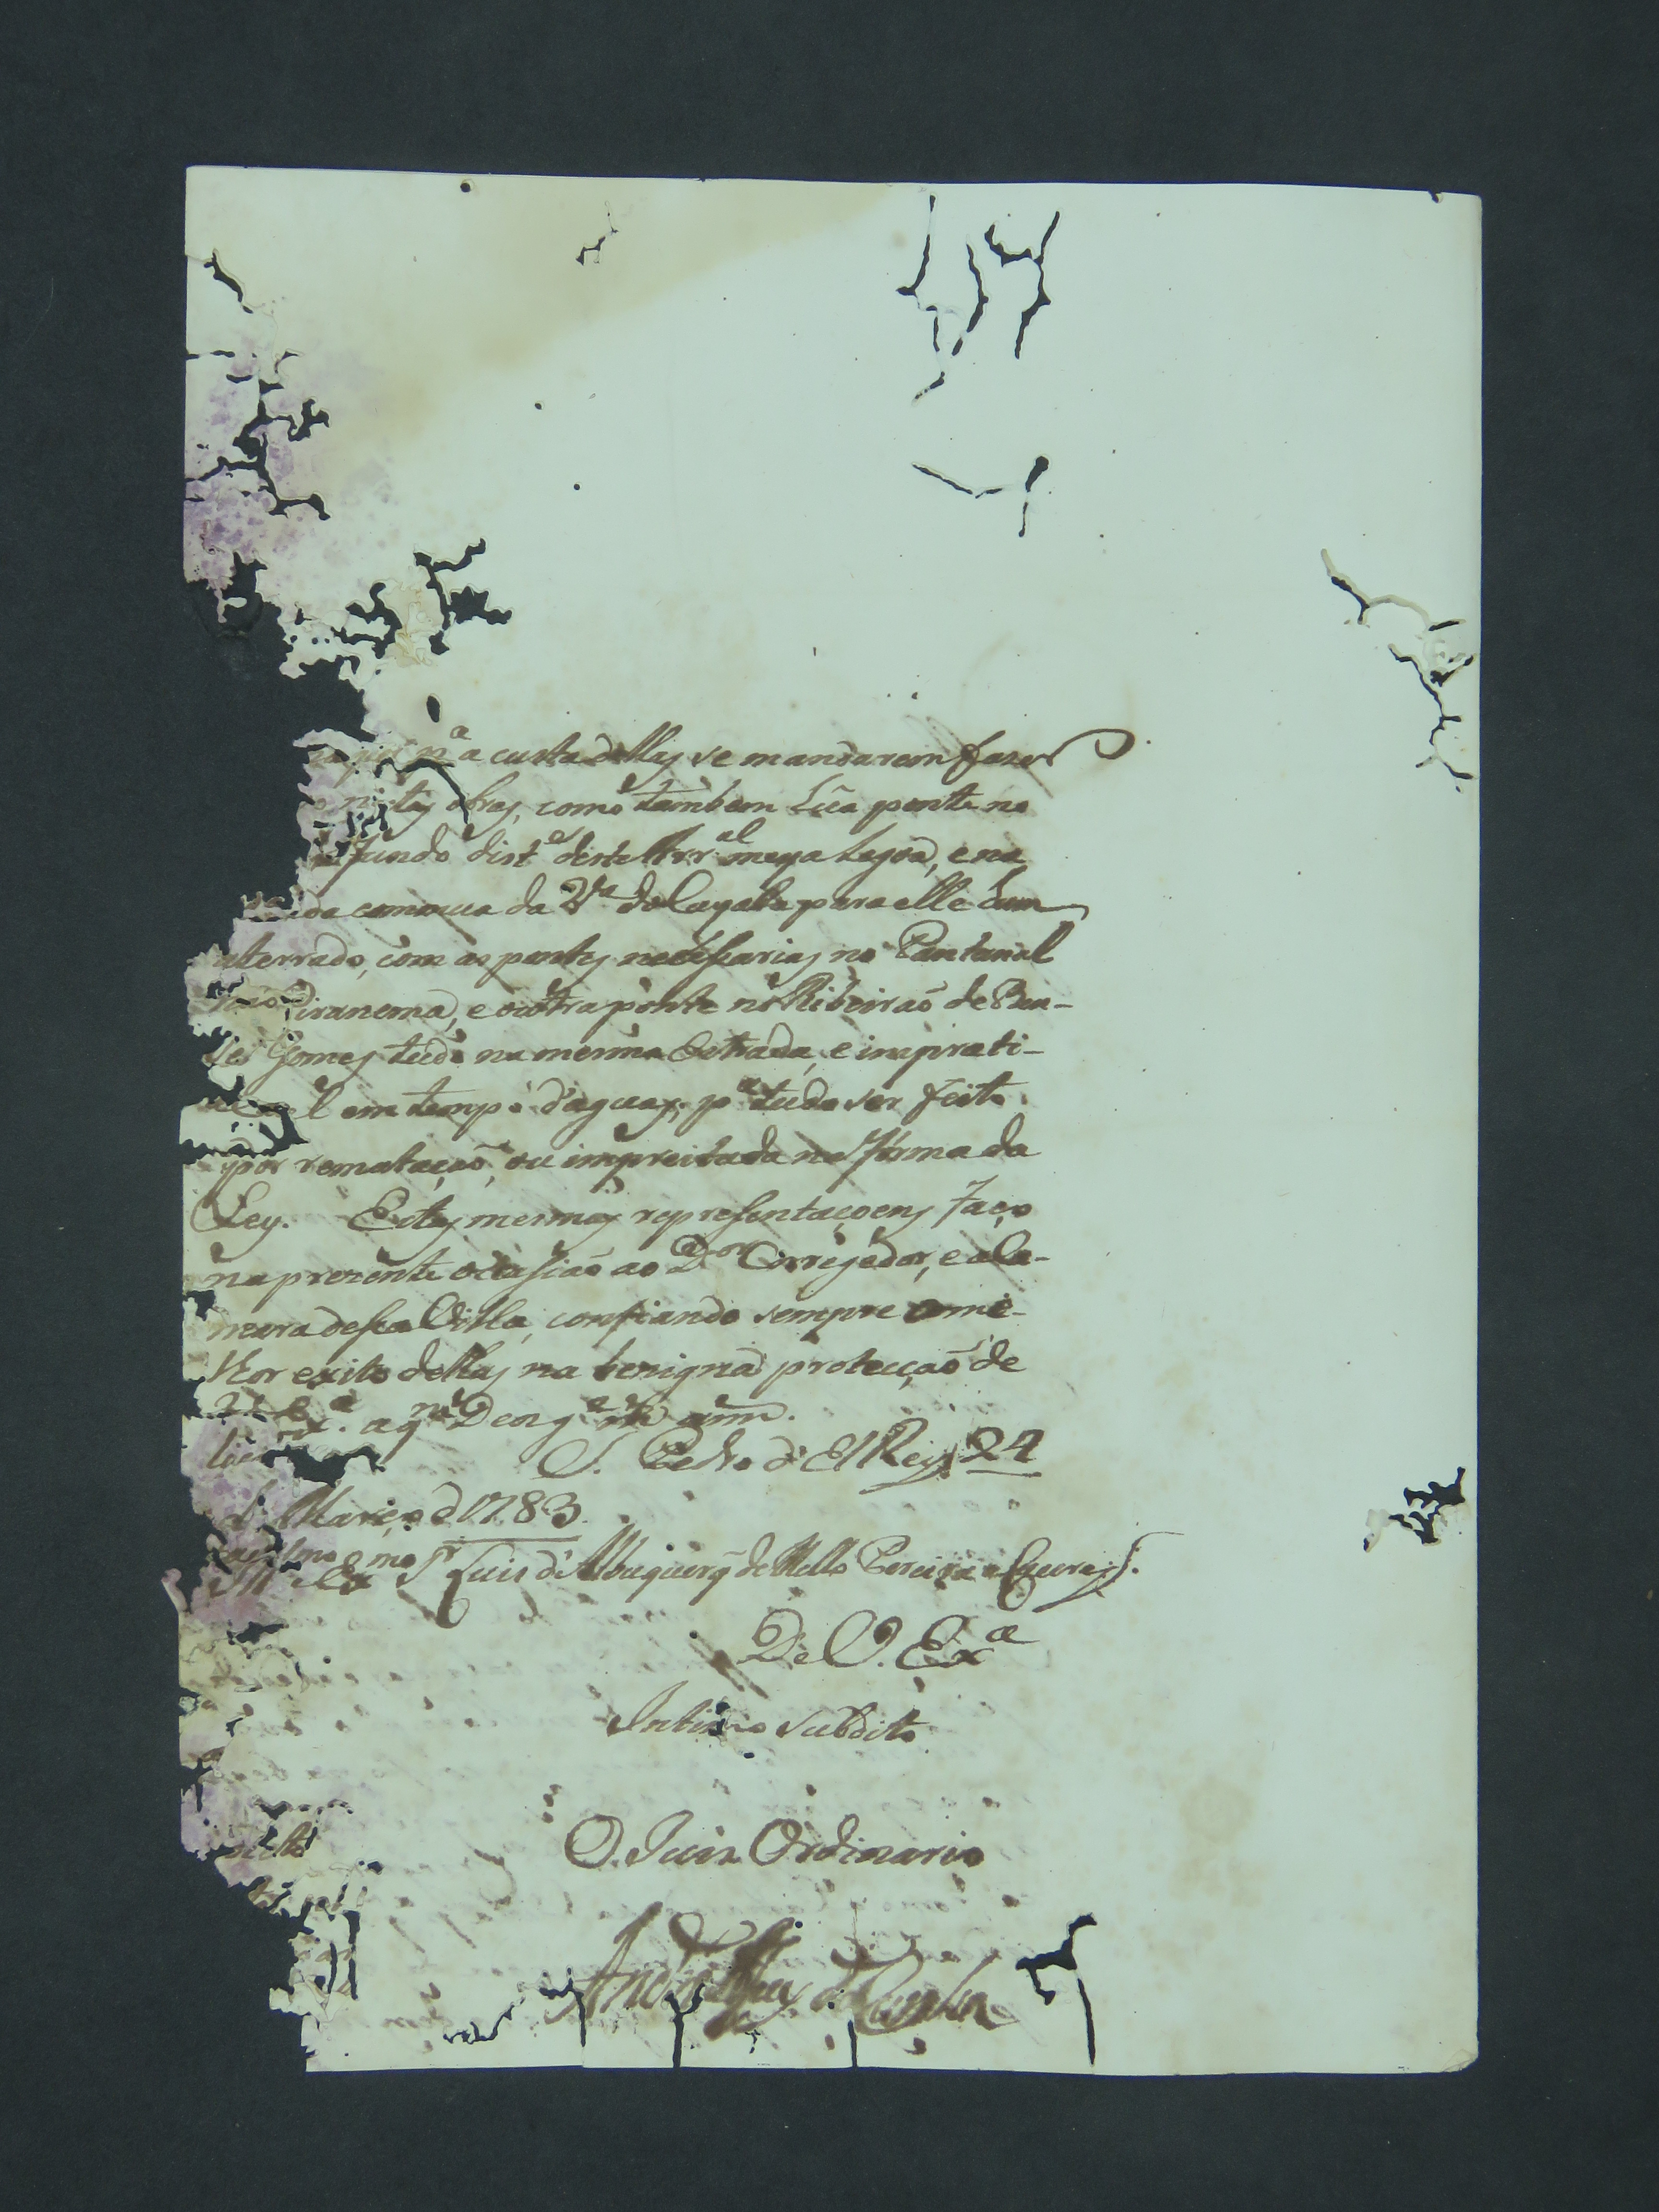 p.ª a custa dellas se mandarem fazer
obras, como tambem hũa ponte no
fundo dist.e deste Arr.al meya legoa, e na
da commua da V.ª do Cuyabá para elle hum
aterrado, com as pontes necessarias no Pantanal
Piranema, e outra ponte no Ribeirão de Ben-
Gomes tudo na mesma Estrada, e imprati-
l em tempo d'aguas, p.ª tudo ser feito
por remataçaõ, ou impreitada na forma da
Ley. Estas mesmas representaçoens faço
na prezente occasiaõ ao D.or Corregedor, e a Ca-
mara dessa Villa, confiando sempre o me-
lhor exito dellas na benigna protecçaõ de
Ex.ª a q.m Deos g.e m.s ann.
S. Pedro d'El Rey 24
de Março d 1783.
Ill.mo e Ex.mo S.r Luis d'Albuquerq̃ de Mello Pereira e Caceres.
De V. Ex.ª
Intimo subdito
O Juis Ordinario